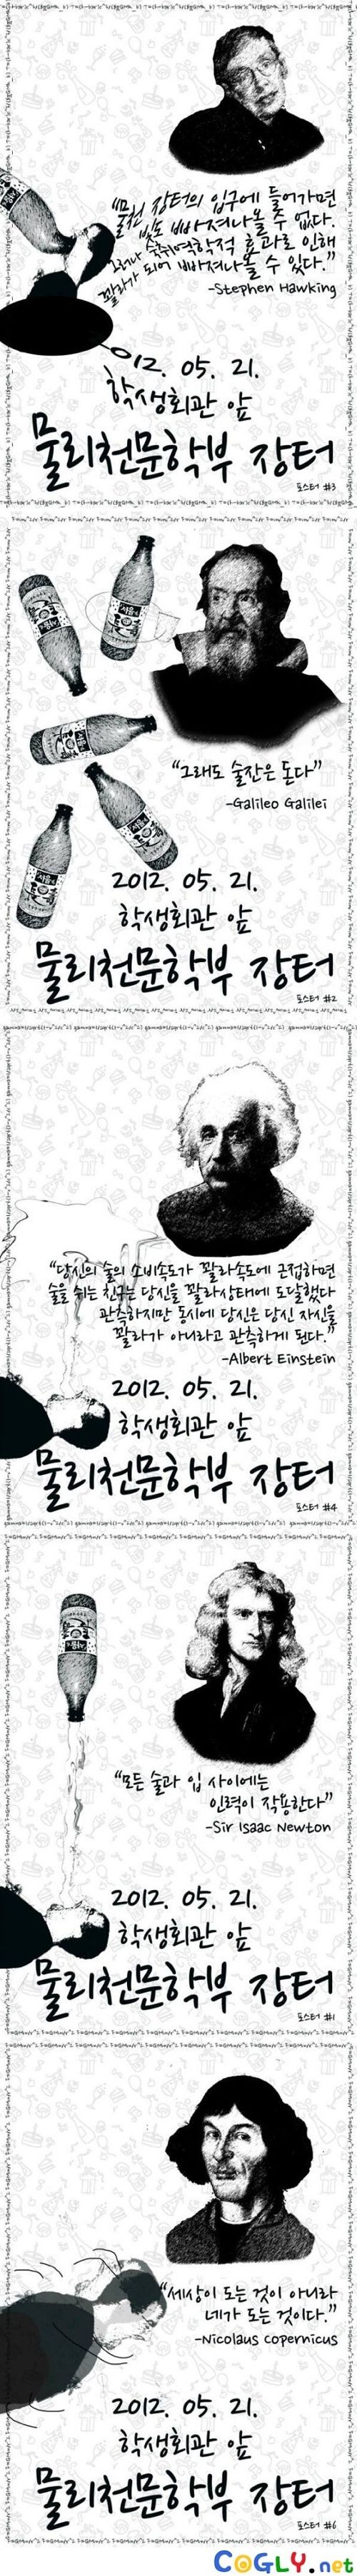 “물천 장터의 입구에 들어가면
빛도 빠져나올 수 없다.
그러나 술취역학적 효과로 인해
꽐라가 되어 빠져나올 수 있다.”
-Stephen Hawking
2012. 05. 21.
학생회관 앞
물리천문학부 장터
포스터 #3
“그래도 술잔은 돈다”
-Galileo Galilei
2012. 05. 21.
학생회관 앞
물리천문학부 장터
포스터 #2
“당신의 술의 소비속도가 꽐라속도에 근접하면
술을 쉬는 친구는 당신을 꽐라상태에 도달했다
관측하지만 동시에 당신은 당신 자신을
꽐라가 아니라고 관측하게 된다.”
-Albert Einstein
2012. 05. 21.
학생회관 앞
물리천문학부 장터
포스터 #4
“모든 술과 입 사이에는
인력이 작용한다”
-Sir Isaac Newton
2012. 05. 21.
학생회관 앞
물리천문학부 장터
포스터 #1
“세상이 도는 것이 아니라
네가 도는 것이다.”
-Nicolaus Copernicus
2012. 05. 21.
학생회관 앞
물리천문학부 장터
포스터 #6
COGLY.net